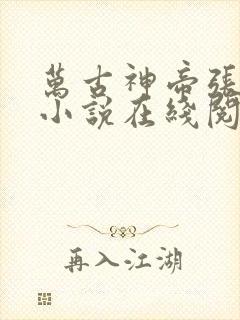 萬古神帝張
小說在綫閱
再入江湖